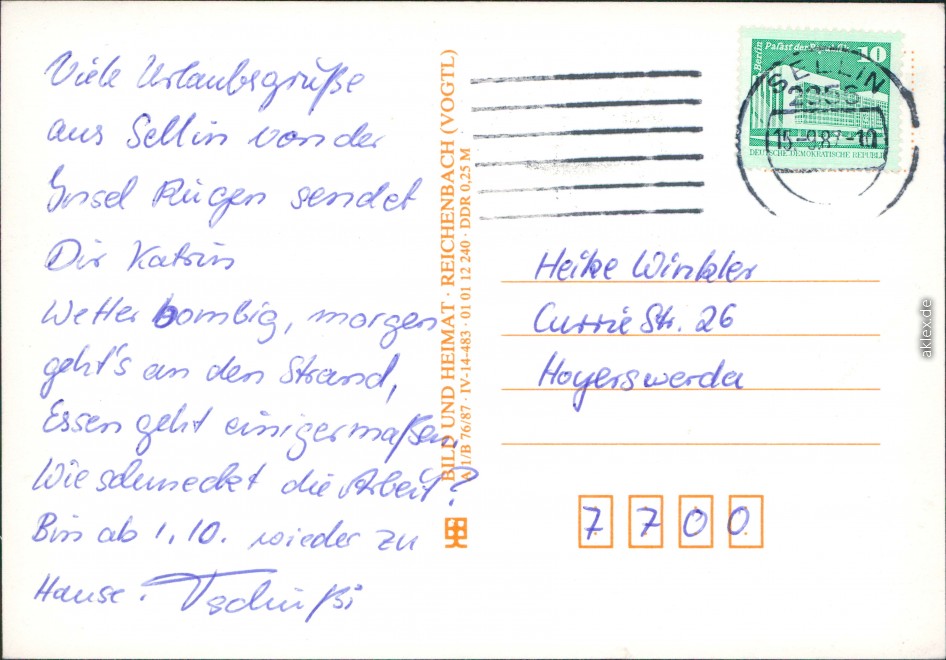 Viele Urlaubsgrüße
aus Sellin von der
Insel Rügen sendet
Dir Katrin
Wetter bombig, morgen
geht's an den Strand,
Essen geht einigermaßen.
Wie schmeckt die Arbeit?
Bin ab 1.10. wieder zu
Hause. Tschüßi
BILD UND HEIMAT · REICHENBACH (VOGTL)
A 1/B 76/87 · IV-14-483 · 01 01 12 240 · DDR 0,25 M
Berlin Palast der Republik 10
DEUTSCHE DEMOKRATISCHE REPUBLIK
SELLIN
2356
15.-9.87-10
Heike Winkler
Currie Str. 26
Hoyerswerda
7700
aklex.de